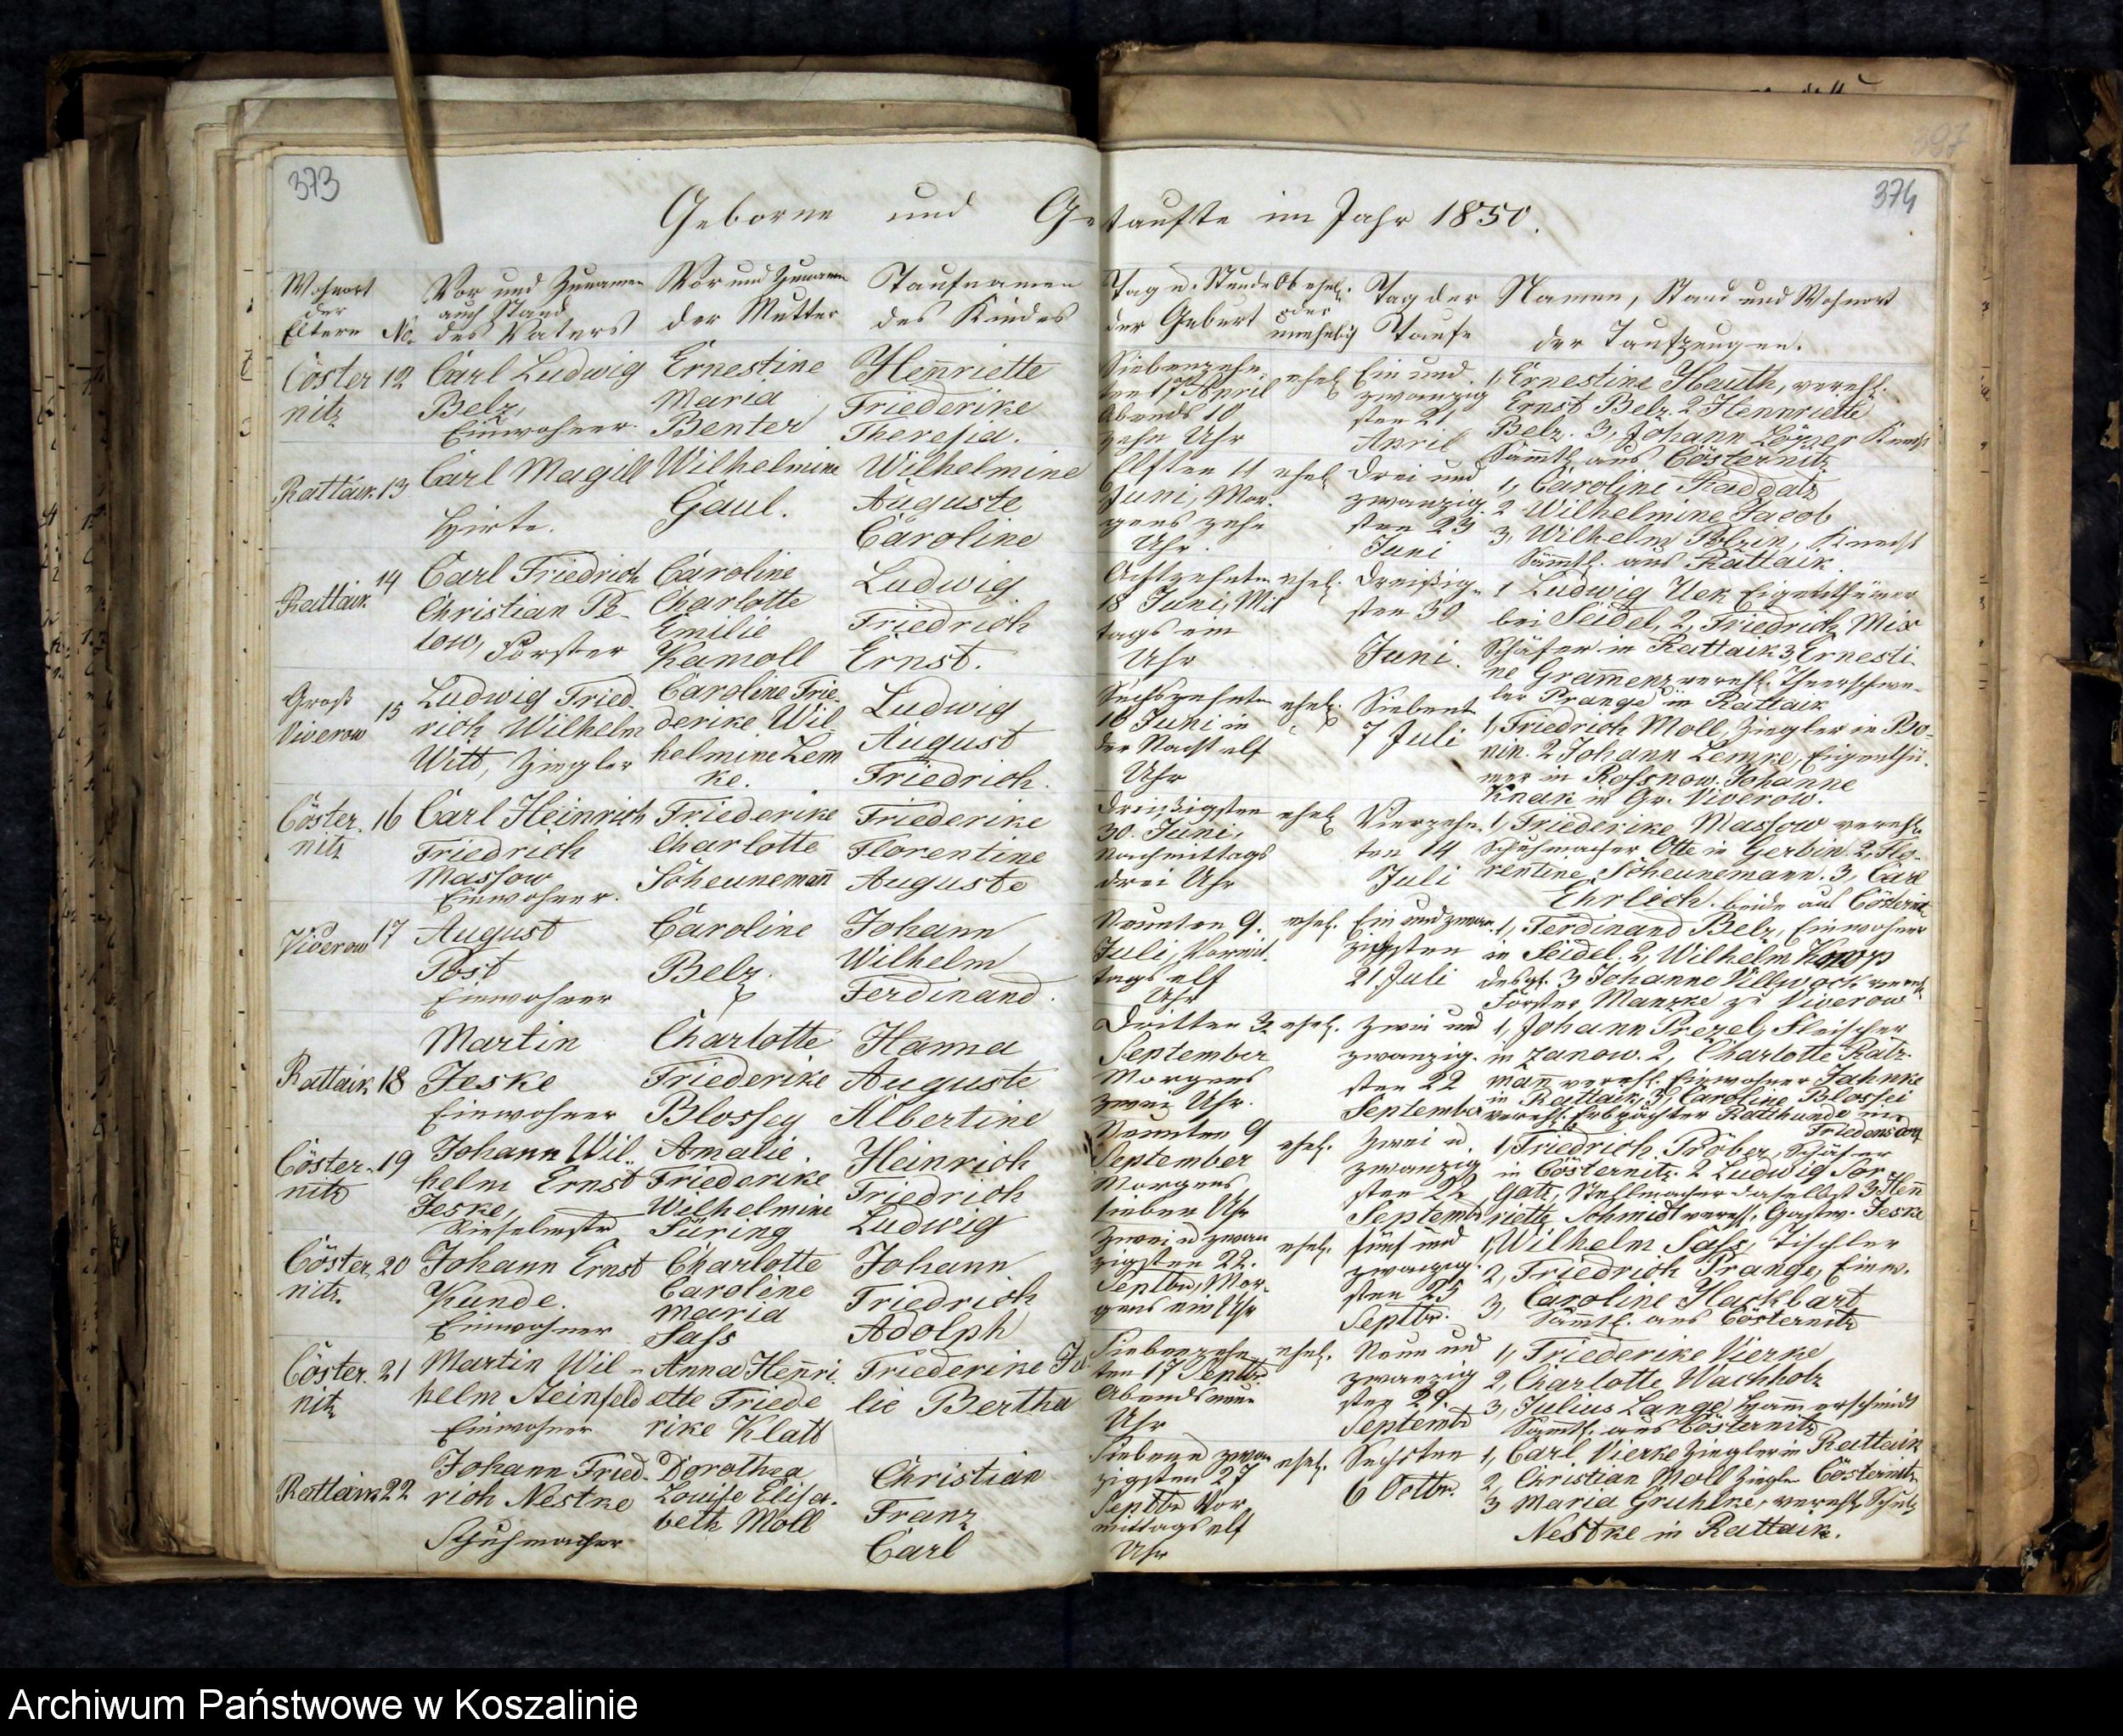 373
374
Geborne und Getaufte im Jahr 1850.
Wohnort der Eltern
No.
Vor und Zunamen auch Stand des Vaters
Vor und Zunamen der Mutter
Taufnamen des Kindes
Tag u. Stunde der Geburt
Ob ehel. oder unehelig
Tag der Taufe
Namen, Stand und Wohnort der Taufzeugen.
Cöster
nitz
12
Carl Ludwig
Belz,
Einwohner.
Ernestine
Maria
Benter
Henriette
Friederike
Theresia.
Siebenzehn
ten 17 April
Abends 10
zehn Uhr
ehel
Ein und
zwanzig
sten 21
April
1, Ernestine Heuth, verehl.
Ernst Belz. 2 Hennriette
Belz. 3, Johann Knecht
Sämtl. aus Cösternitz
Rattaik
13
Carl Magill
Hirte.
Wilhelmine
Gaul.
Wilhelmine
Auguste
Caroline
Elften 11
Juni, Mor.
gens zehn
Uhr.
ehel
Drei und
zwanzig.
sten 23
Juni
1, Caroline Raddatz
2 Wilhelmine Jacob
3, Wilhelm Polzin, Knecht
Sämtl. aus Rattaik.
Rattaik
14
Carl Friedrich
Christian Pe-
low, Förster
Caroline
Charlotte
Emilie
Kamoll
Ludwig
Friedrich
Ernst.
Achtzehnten
18 Juni, Mit
tags ein
Uhr
ehel.
Dreißig-
sten 30
Juni.
1 Ludwig Uek Eigenthümer
bei Seidel, 2, Friedrich Mix
Schäfer in Rattaik 3, Ernesti
ne Gramenz verehl.
ler Prange in Rattaik
Groß
Viverow
15
Ludwig Fried.
rich Wilhelm
Witt, Ziegler
Caroline Frie-
derike Wil
helmine Lem
ke.
Ludwig
August
Friedrich.
Sechszehnten
16 Juni in
der Nacht elf
Uhr
ehel.
Siebent
7 Juli
1, Friedrich Moll, Ziegler in Bo-
nin. 2 Johann Lemke, Eigenthü-
mer in Rossnow. Johanne
Knak in Gr. Viverow.
Cöster.
nitz
16
Carl Heinrich
Friedrich
Massow
Einwohner.
Friederike
Charlotte
Scheunemañ
Friederike
Florentine
Auguste
Dreißigsten
30. Juni,
Nachmittags
drei Uhr
ehel
Vierzehn.
ten 14
Juli
1, Friederike Massow verehl.
Schuhmacher Otte in Gerbin. 2, Flo-
rentine Scheunemann. 3, Carl
Ehrlich. beide aus Cösternitz
Viverow
17
August
Post
Einwohner
Caroline
Belz.
Johann
Wilhelm
Ferdinand.
Neunten 9.
Juli, Vormit.
tags elf
Uhr
ehel.
Ein und zwan.
zigsten
21 Juli
1, Ferdinand Belz, Einwohner
in Seidel. 2, Wilhelm
desgl. 3 Johanne Villwock verehl.
Förster Manzke zu Viverow
Rattaik
18
Martin
Jeske
Einwohner
Charlotte
Friederike
Blossey
Hanna
Auguste
Albertine
Dritten 3
September
Morgens
zwei Uhr.
ehel.
Zwei und
zwanzig.
sten 22
September
1, Johann Prezel, Fleischer
in Zanow. 2, Charlotte Ratz-
mañ verehl. Einwohner Jahnke
in Rattaik, 3, Caroline Blossei
verehl. Erbpächter Ratthunde in
Friedensdorf
Cöster.
nitz
19
Johann Wil..
helm Ernst
Jeske,
Amalie
Friederike
Wilhelmine
Füring
Heinrich
Friedrich
Ludwig
Neunten 9
September
Morgens
sieben Uhr
ehel.
Zwei u.
zwanzig
sten 22
Septemb
1, Friedrich Pröber, Schäfer
in Cösternitz. 2 Ludwig Por-
gatz, Stellmacher daselbst 3 Heñ
riette Schmidt verehl. Gastw. Jeske
Cöster.
nitz.
20
Johann Ernst
Kunde.
Einwohner
Charlotte
Caroline
Maria
Sass
Johann
Friedrich
Adolph
Zwei u zwan
zigsten 22.
Septbr, Mor.
gens ein Uhr
ehel.
Fünf und
zwanzig.
sten 25
Septbr.
1, Wilhelm Sass, Tischler
2, Friedrich Prange, Einw.
3, Caroline Hackbart
Sämtl. aus Cösternitz
Cöster.
nitz
21
Martin Wil-
helm Steinfeld
Einwohner
Anna Heñri.
ette Friede
rike Klatt
Friederike Ju
lie Bertha
Siebenzehn
ten 17 Septbr.
Abends neun
Uhr
ehel.
Neun und
zwanzig
sten 29.
Septemb
1, Friederike Vierke
2, Charlotte Wachholz
3, Julius Lange Hamerschmidt
Sämtl. aus Cösternitz
Rattaik
22
Johann Fried.
rich Nestke
Schuhmacher
Dorothea
Louise Elisa.
beth Moll
Christian
Franz
Carl
Sieben u zwan
zigsten 27
Septbr Vor
mittags elf
Uhr
ehel.
Sechsten
6 Octbr.
1, Carl Vierke Ziegler in Rattaik
2, Christian Moll Ziegler Cösternitz
3 Maria Gruhlke, verehl. Schulz
Nestke in Rattaik.
Archiwum Państwowe w Koszalinie